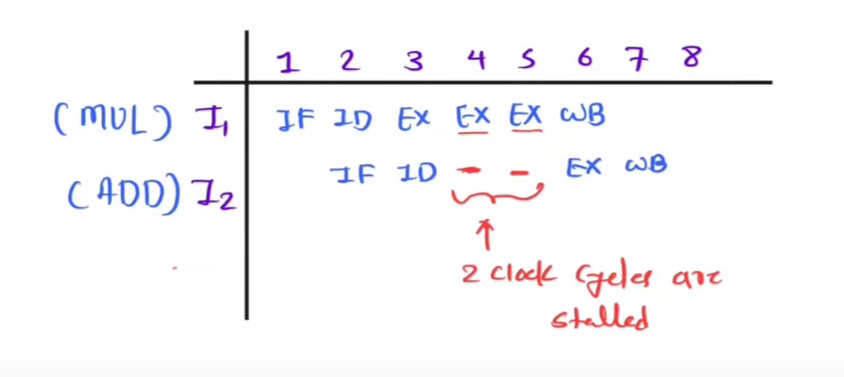 1 2 3 4 5 6 7 8
(MUL) I1 IF ID EX EX EX WB
(ADD) I2 IF ID - - EX WB
2 clock cycles are
stalled